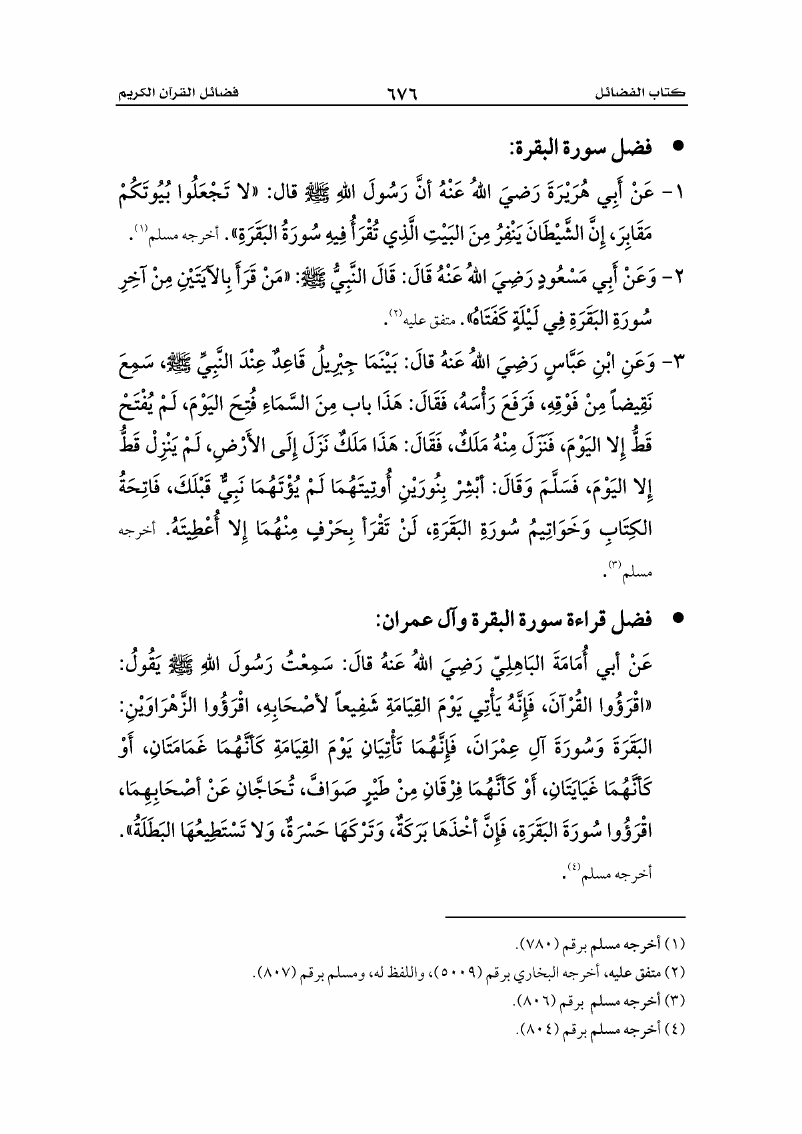 كتاب الفضائل ٦٧٦ فضائل القرآن الكريم
● فضل سورة البقرة:
١- عَنْ أَبِي هُرَيْرَةَ رَضِيَ اللهُ عَنْهُ أنَّ رَسُولَ اللهِ ﷺ قال: «لا تَجْعَلُوا بُيُوتَكُمْ
مَقَابِرَ، إنَّ الشَّيْطَانَ يَنْفِرُ مِنَ البَيْتِ الَّذِي تُقْرَأُ فِيهِ سُورَةُ البَقَرَةِ». أخرجه مسلم(١).
٢- وَعَنْ أَبِي مَسْعُودٍ رَضِيَ اللهُ عَنْهُ قَالَ: قَالَ النَّبِيُّ ﷺ: «مَنْ قَرَأَ بِالآيَتَيْنِ مِنْ آخِرِ
سُورَةِ البَقَرَةِ فِي لَيْلَةٍ كَفَتَاهُ». متفق عليه(٢).
٣- وَعَنِ ابْنِ عَبَّاسٍ رَضِيَ اللهُ عَنهُ قالَ: بَيْنَمَا جِبْرِيلُ قَاعِدٌ عِنْدَ النَّبِيِّ ﷺ، سَمِعَ
نَقِيضاً مِنْ فَوْقِهِ، فَرَفَعَ رَأْسَهُ، فَقَالَ: هَذَا باب مِنَ السَّمَاءِ فُتِحَ اليَوْمَ، لَمْ يُفْتَحْ
قَطُّ إلا اليَوْمَ، فَنَزَلَ مِنْهُ مَلَكٌ، فَقَالَ: هَذَا مَلَكٌ نَزَلَ إلَى الأَرْضِ، لَمْ يَنْزِلْ قَطُّ
إلا اليَوْمَ، فَسَلَّمَ وَقَالَ: أبْشِرْ بِنُورَيْنِ أُوتِيتَهُمَا لَمْ يُؤْتَهُمَا نَبِيٌّ قَبْلَكَ، فَاتِحَةُ
الكِتَابِ وَخَوَاتِيمُ سُورَةِ البَقَرَةِ، لَنْ تَقْرَأ بِحَرْفٍ مِنْهُمَا إلا أُعْطِيتَهُ. أخرجه
مسلم(٣).
● فضل قراءة سورة البقرة وآل عمران:
عَنْ أبي أُمَامَةَ البَاهِلِيّ رَضِيَ اللهُ عَنهُ قالَ: سَمِعْتُ رَسُولَ اللهِ ﷺ يَقُولُ:
«اقْرَؤُوا القُرْآنَ، فَإنَّهُ يَأْتِي يَوْمَ القِيَامَةِ شَفِيعاً لأصْحَابِهِ، اقْرَؤُوا الزَّهْرَاوَيْنِ:
البَقَرَةَ وَسُورَةَ آلِ عِمْرَانَ، فَإنَّهُمَا تَأْتِيَانِ يَوْمَ القِيَامَةِ كَأنَّهُمَا غَمَامَتَانِ، أوْ
كَأنَّهُمَا غَيَايَتَانِ، أوْ كَأنَّهُمَا فِرْقَانِ مِنْ طَيْرٍ صَوَافَّ، تُحَاجَّانِ عَنْ أصْحَابِهِمَا،
اقْرَؤُوا سُورَةَ البَقَرَةِ، فَإنَّ أخْذَهَا بَرَكَةٌ، وَتَرْكَهَا حَسْرَةٌ، وَلا تَسْتَطِيعُهَا البَطَلَةُ».
أخرجه مسلم(٤).
(١) أخرجه مسلم برقم (٧٨٠).
(٢) متفق عليه، أخرجه البخاري برقم (٥٠٠٩)، واللفظ له، ومسلم برقم (٨٠٧).
(٣) أخرجه مسلم برقم (٨٠٦).
(٤) أخرجه مسلم برقم (٨٠٤).